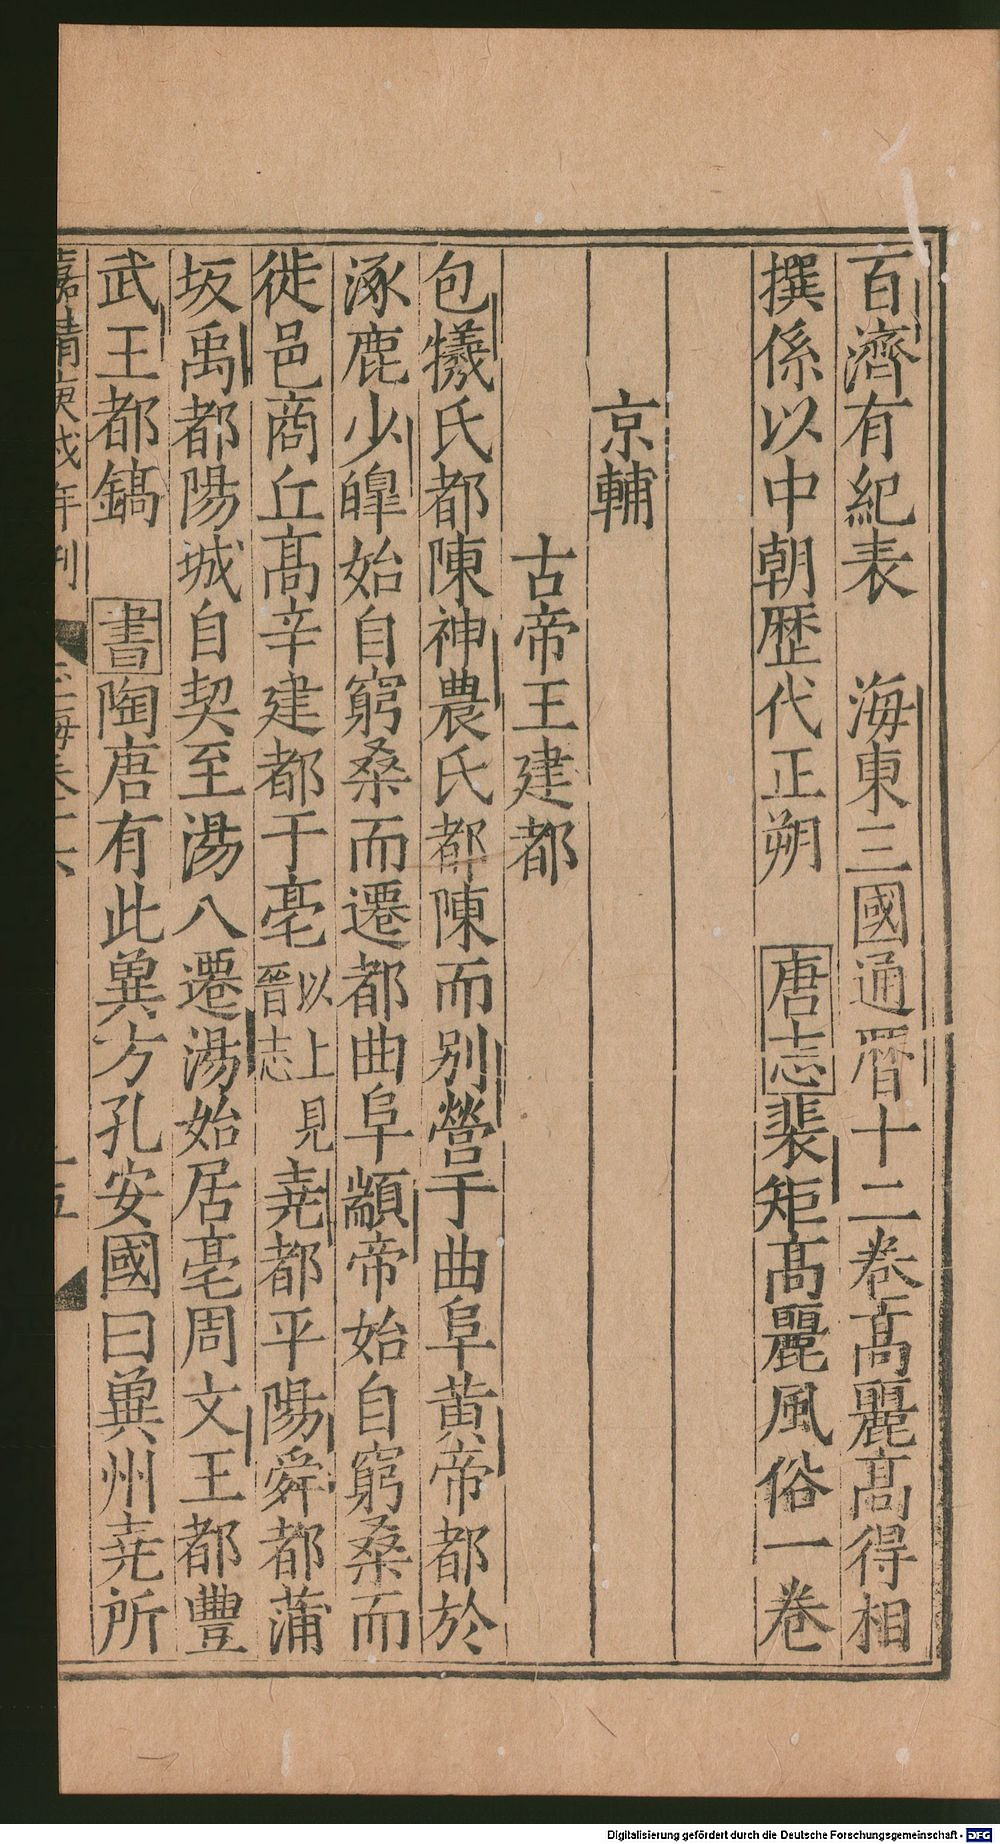 百濟有紀表　海東三國通曆十二卷高麗高得相
撰係以中朝歷代正朔　唐志裴矩高麗風俗一卷
京輔
古帝王建都
包犧氏都陳神農氏都陳而别營于曲阜黄帝都於
涿鹿少皥始自窮桑而遷都曲阜顓帝始自窮桑而
徙邑商丘髙辛建都于亳以上見晉志堯都平陽舜都蒲
坂禹都陽城自契至湯八遷湯始居亳周文王都豐
武王都鎬　書陶唐有此兾方孔安國曰兾州堯所
嘉靖庚戌年刊
Digitalisierung gefördert durch die Deutsche Forschungsgemeinschaft - DFG